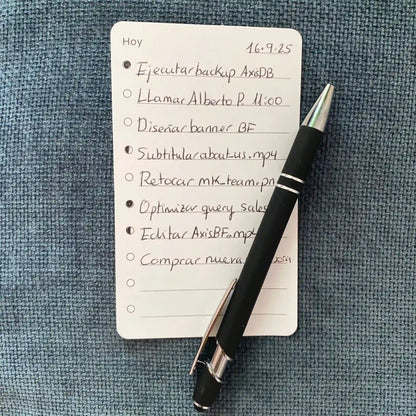 Hoy
16.9.25
Ejecutar backup AxisDB
Llamar Alberto P. 11:00
Diseñar banner BF
Subtitular about_us.mp4
Retocar mk_team.pn
Optimizar query sales
Editar AxisBF.mp4
Comprar nueva